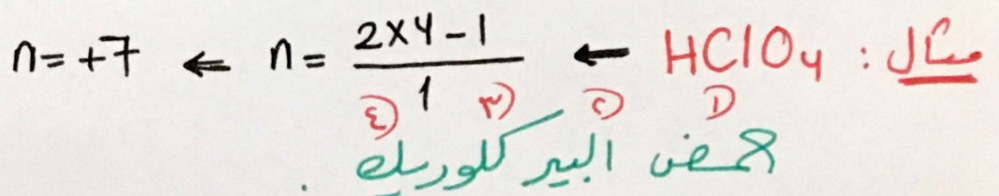 مثال : HClO4 ← n = 2×4-1 / 1 ← n = +7
١) ٢) ٣) ٤)
حمض البير كلوريك .